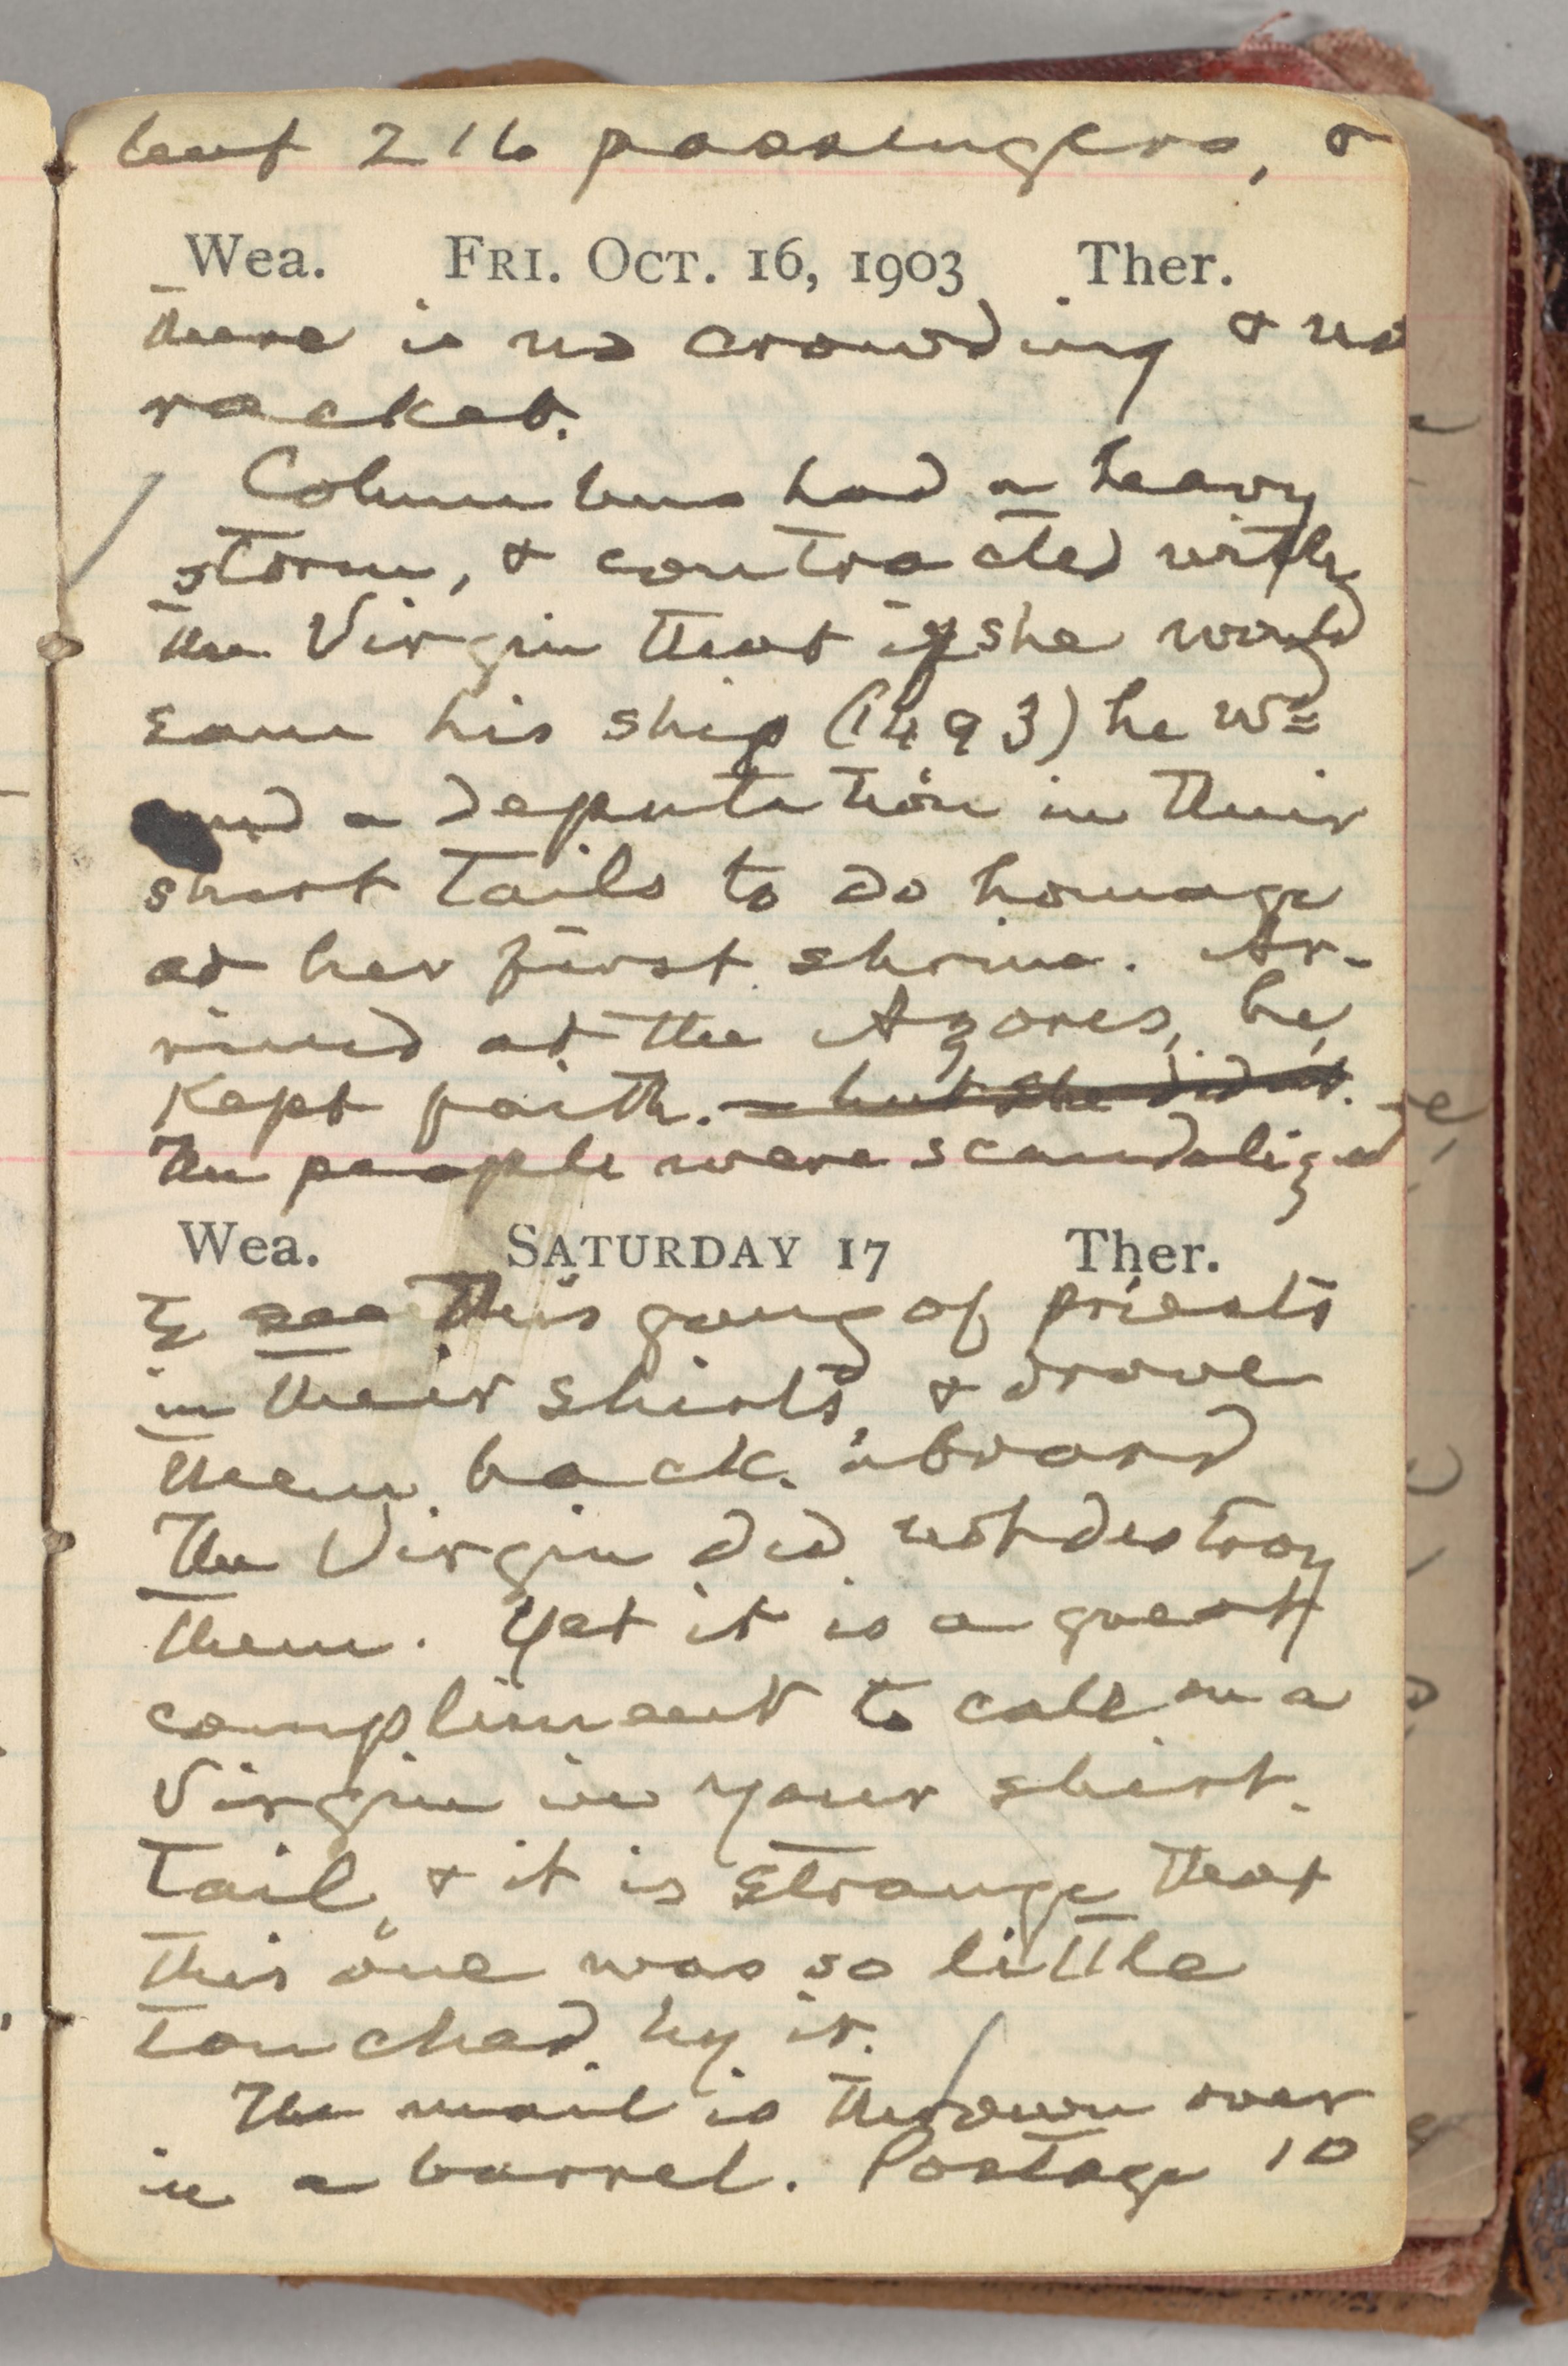 but 216 passengers, &
Wea. FRI. OCT. 16, 1903 Ther.
there is no crowding & no
racket.
Columbus had a heavy
storm, & contracted with
the Virgin that if she would
save his ship (1493) he wd
send a deputation in their
shirt tails to do homage
at her first shrine. Ar-
rived at the Azores, he
kept faith. — but she didn't.
The people were scandalized
Wea. SATURDAY 17 Ther.
to see this gang of priests
in their shirts, & drove
them back aboard
The Virgin did not destroy
them. Yet it is a great
compliment to call on a
Virgin in your shirt-
tail, & it is strange that
this one was so little
touched by it.
The mail is thrown over
in a barrel. Postage 10